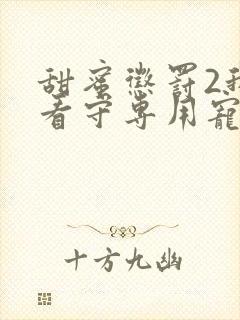 甜蜜懲罰2我
看守專用寵
十方九幽